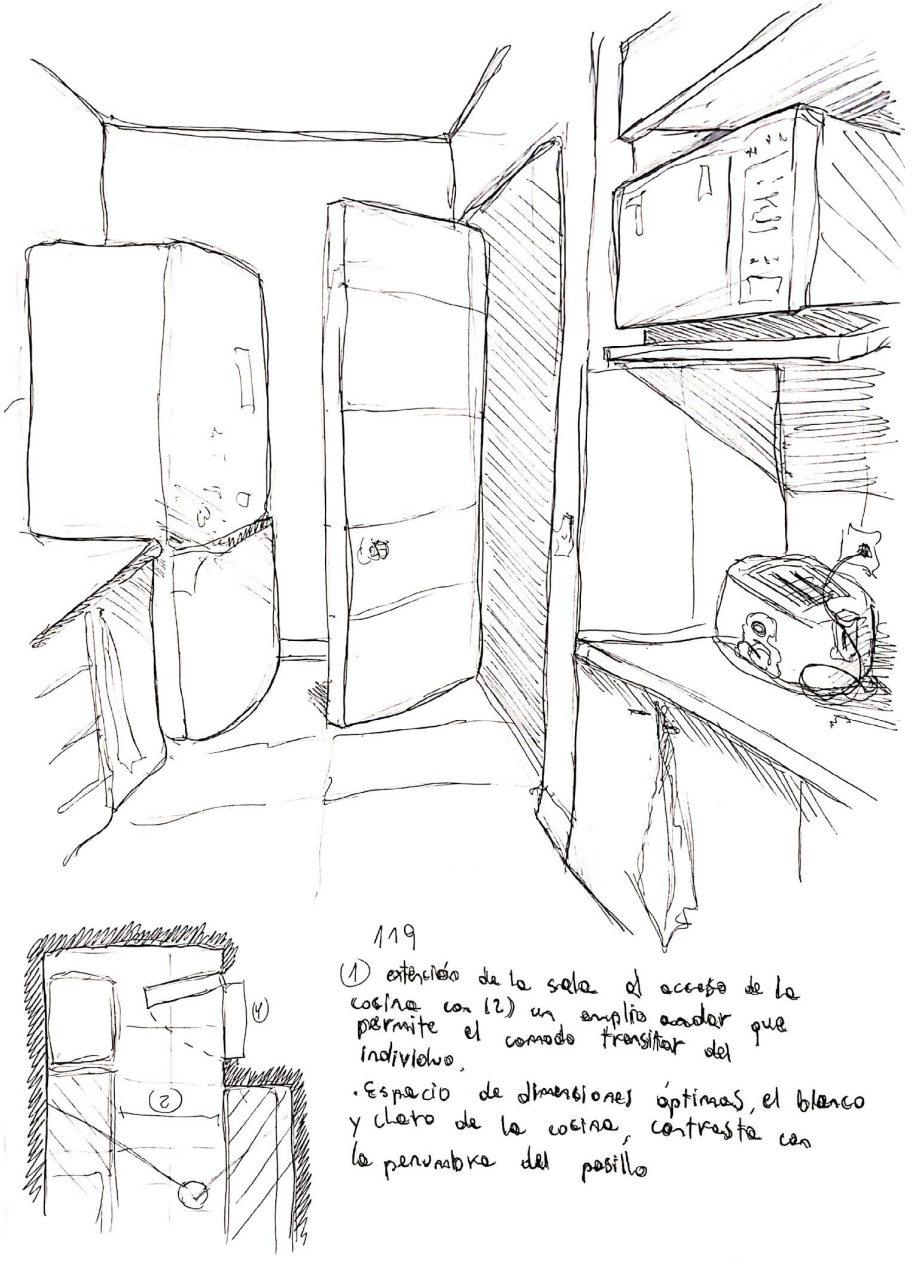 119
(1) extención de la sala al acceso de la
cocina con (2) un amplio andar que
permite el comodo transitar del
individuo.
. Espacio de dimensiones óptimas, el blanco
y claro de la cocina, contrasta con
la penumbra del pasillo
(2)